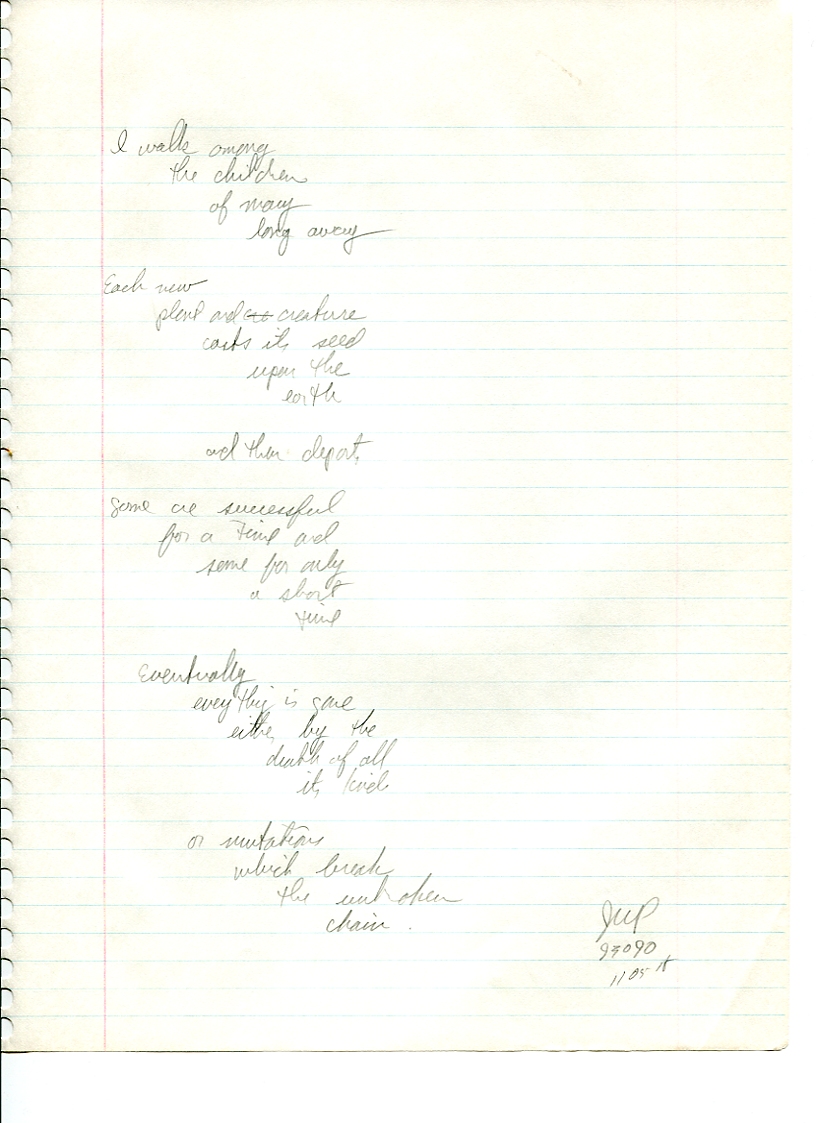 I walk among
the children
of many
long away
Each new
plant and creature
casts its seed
upon the
earth
and then departs
Some are successful
for a time and
some for only
a short
time
Eventually
everything is gone
either by the
death of all
its kind
or mutations
which break
the unbroken
chain.
JWP
93090
1105